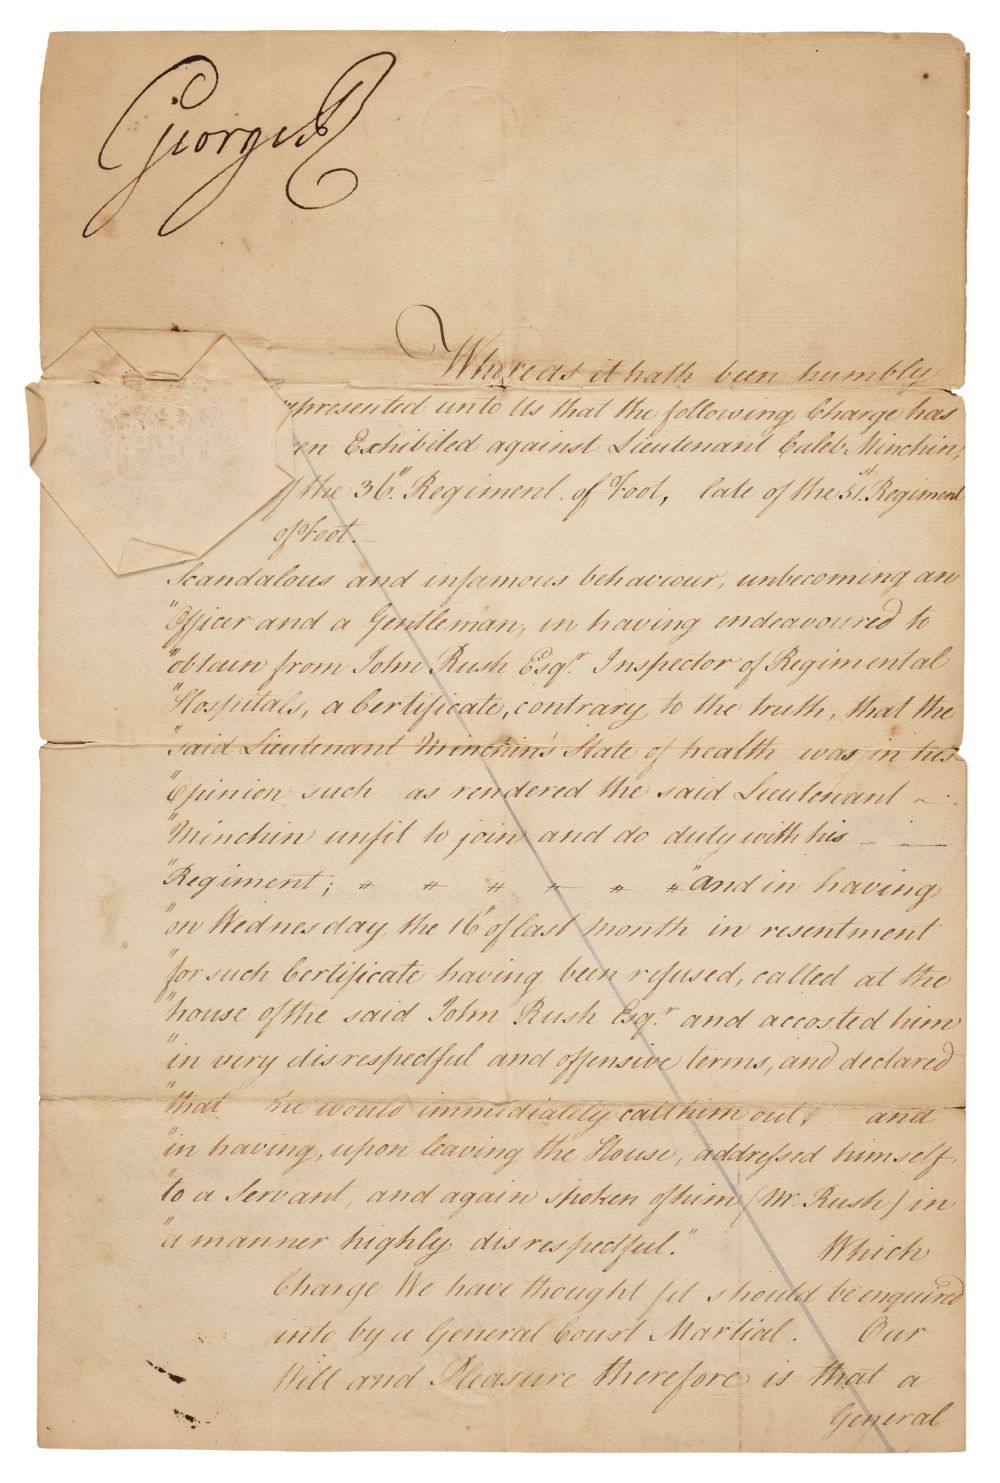 George R
Whereas it hath been humbly
represented unto Us that the following Charge has
en Exhibited against Lieutenant Caleb Minchin,
of the 36th Regiment of Foot, late of the 51st Regiment
of Foot. —
Scandalous and infamous behaviour, unbecoming an
"Officer and a Gentleman, in having endeavoured to
"obtain from John Rush Esqr. Inspector of Regimental
"Hospitals, a Certificate, contrary to the truth, that the
"said Lieutenant Minchin's State of health was in his
"Opinion such as rendered the said Lieutenant
"Minchin unfit to join and do duty with his
"Regiment; " " " " " " "and in having
"on Wednesday the 16th of last month in resentment
"for such Certificate having been refused, called at the
"house of the said John Rush Esqr. and accosted him
"in very disrespectful and offensive terms, and declared
"that he would immediately call him out, and
"in having, upon leaving the House, addressed himself
"to a Servant, and again spoken of him (Mr. Rush) in
"a manner highly disrespectful." Which
Charge We have thought fit should be enquired
into by a General Court Martial. Our
Will and Pleasure therefore is that a
General